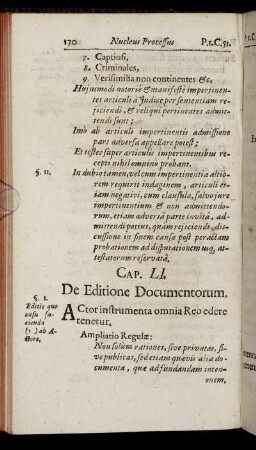 170 Nucleus Processus P.1.C.51.
7. Captiosi,
8. Criminales,
9. Verisimilia non continentes &c.
Hujusmodi notoriè & manifestè impertinen-
tes articuli à Judice per sententiam re-
jiciendi, & reliqui pertinentes admit-
tendi sunt;
Imò ab articuli impertinentis admissione
pars adversa appellare potest;
Et testes super articulis impertinentibus re
cepti nihil omnino probant.
§. 11. In dubio tamen, vel cum impertinentia altio-
rem requirit indaginem, articuli et-
iam negativi, cum clausula, salvo jure
impertinentium & non admittendo-
rum, etiam adversâ parte invitâ, ad-
mittendi potius, quàm rejiciendi, dis-
cussione in finem causæ post peractam
probationem ad disputationem usq, at-
testatorum reservatâ.
CAP. LI.
De Editione Documentorum.
§. 1.
Editio quo
casu fa-
cienda
(1) ab A-
ctore,
ACtor instrumenta omnia Reo edere
tenetur.
Ampliatio Regulæ:
Non solum rationes, sive privatas, si-
ve publicas, sed etiam quævis alia do-
cumenta, quæ ad fundandam inten-
onem,